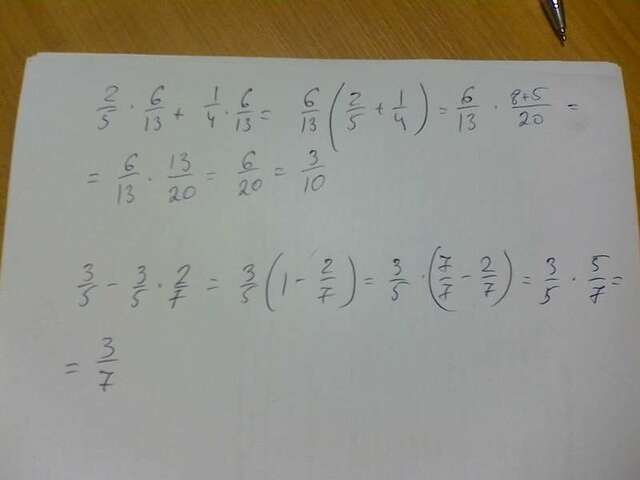 2/5 · 6/13 + 1/4 · 6/13 = 6/13 (2/5 + 1/4) = 6/13 · 8+5/20 =
= 6/13 · 13/20 = 6/20 = 3/10
3/5 - 3/5 · 2/7 = 3/5 (1 - 2/7) = 3/5 · (7/7 - 2/7) = 3/5 · 5/7 =
= 3/7